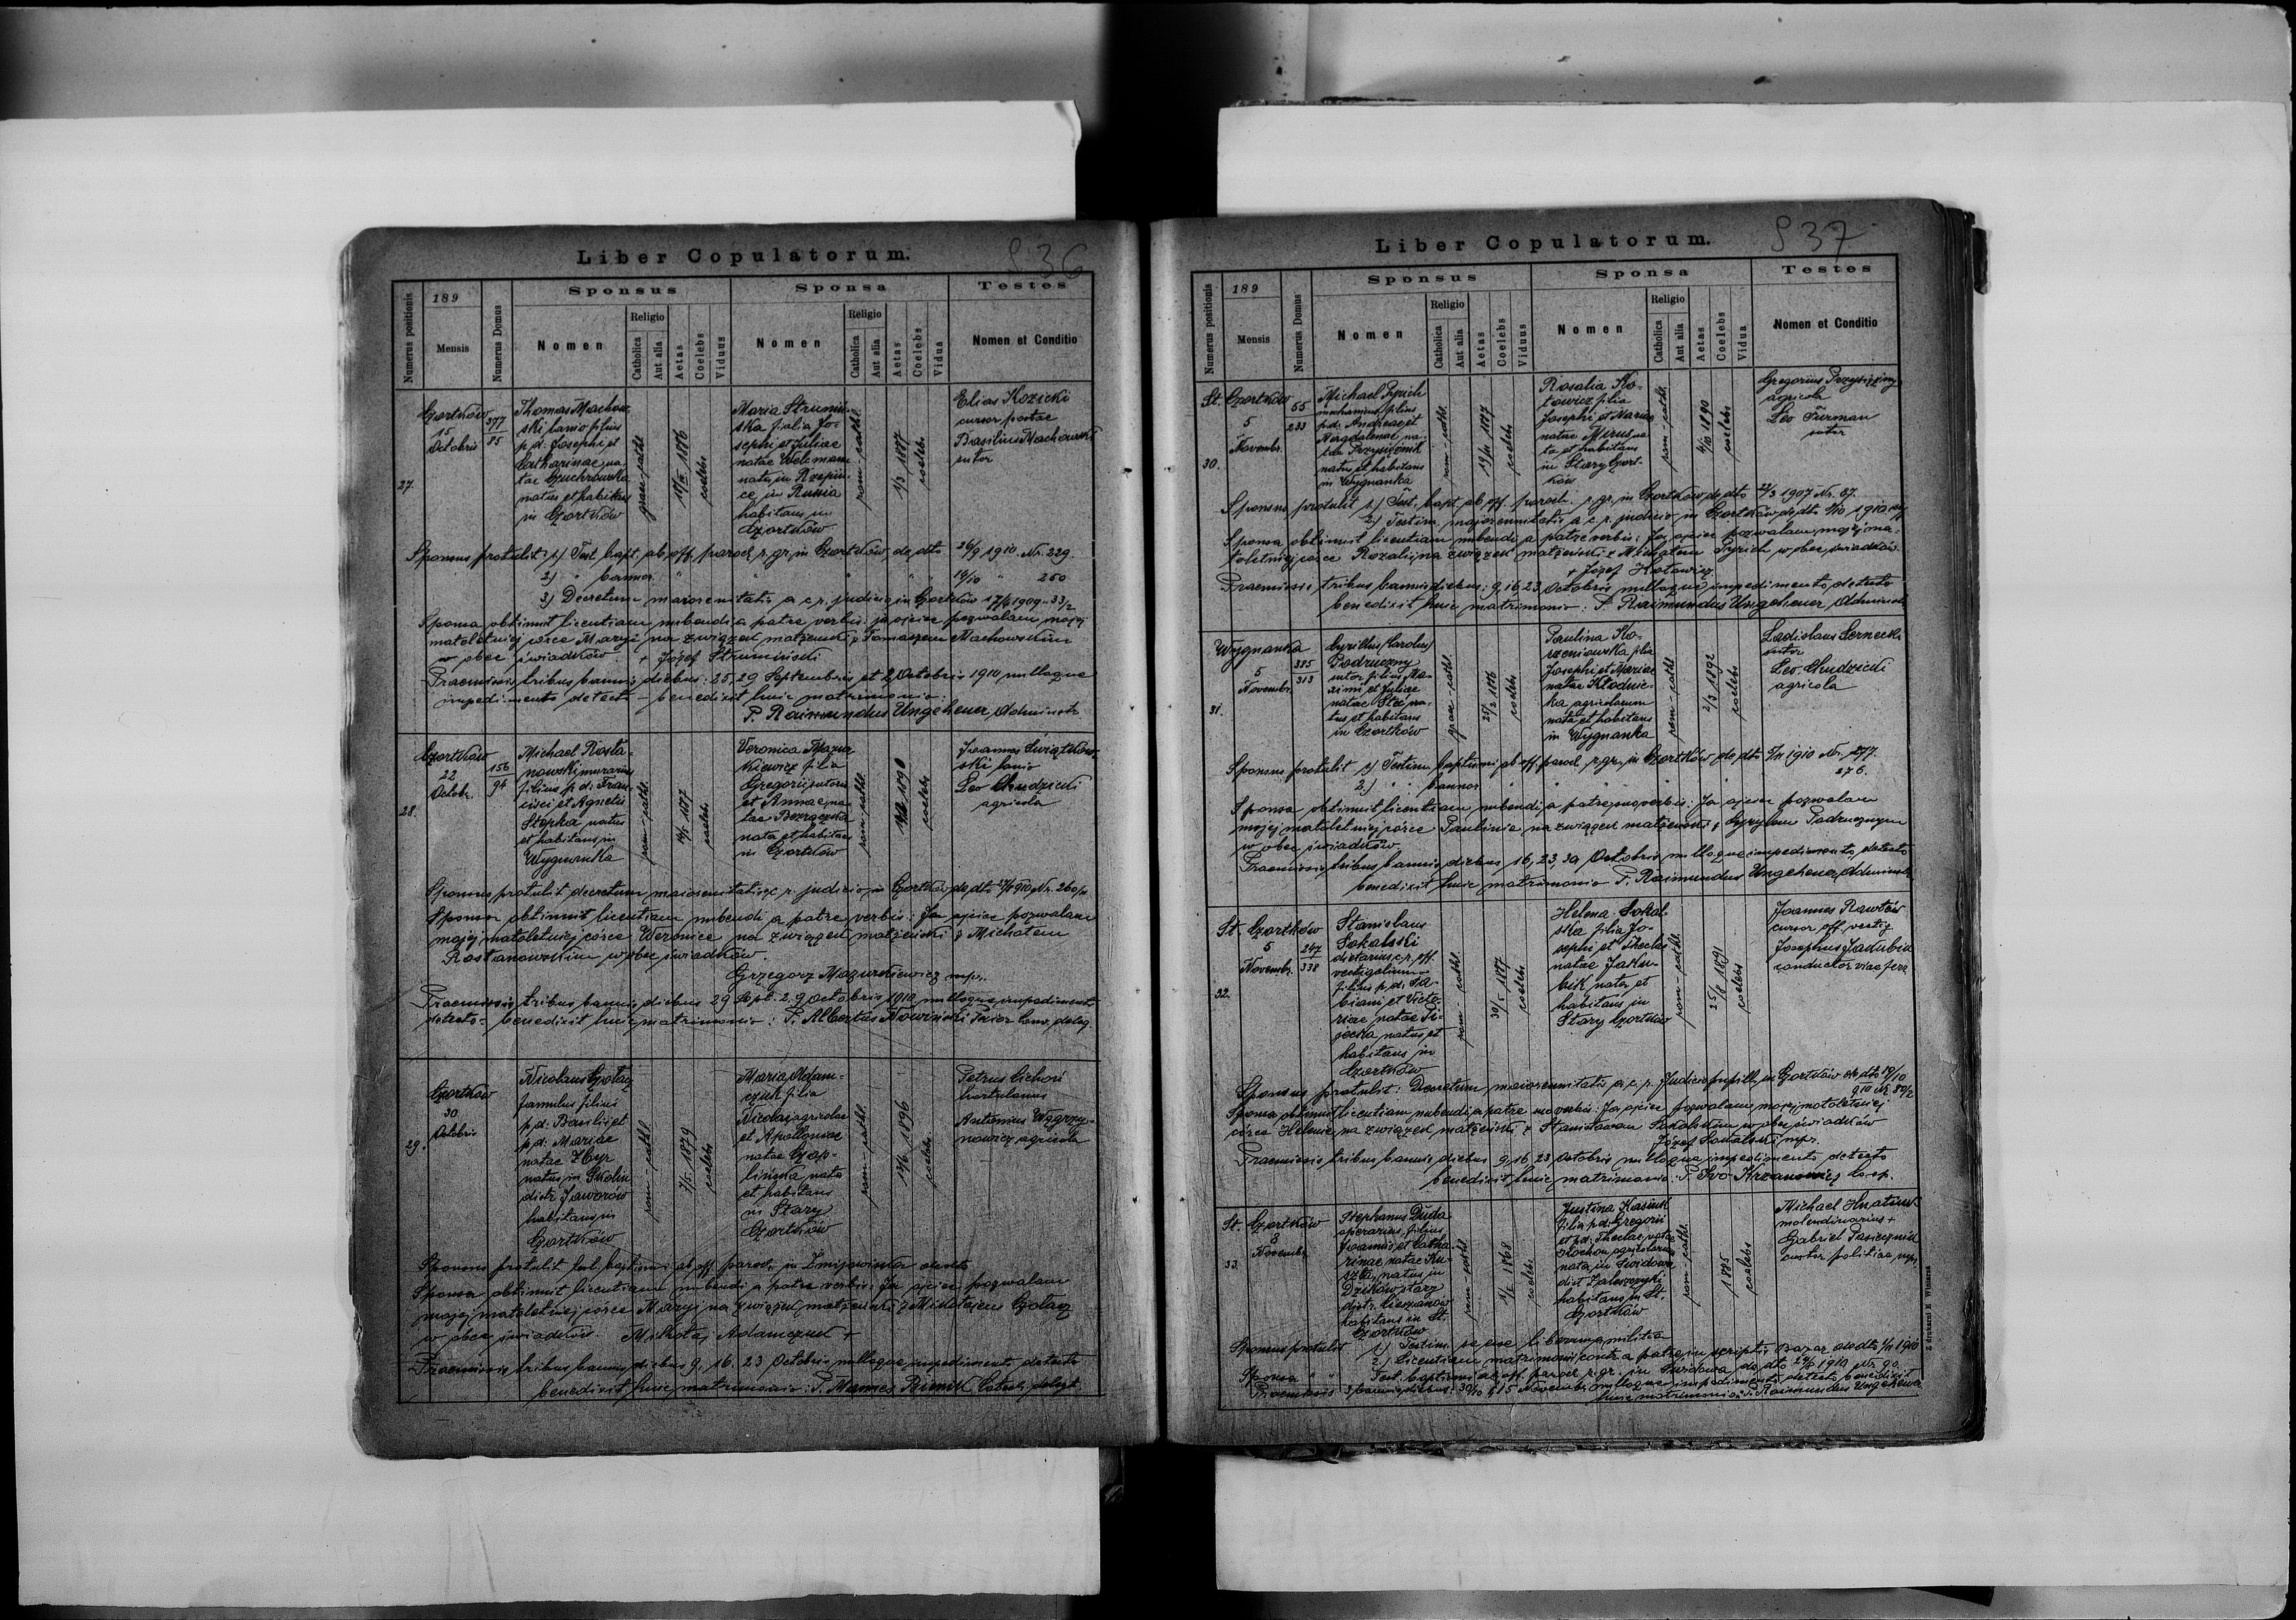 Liber Copulatorum.
836
Numerus positionis
189
Mensis
Numerus Domus
Sponsus
Nomen
Religio
Catholica
Aut alia
Aetas
Coelebs
Viduus
Sponsa
Nomen
Religio
Catholica
Aut alia
Aetas
Coelebs
Vidua
Testes
Nomen et Conditio
27.
Czortków
15
Octobris
377
85
Thomas Machow-
ski lanio filius
p.d. Josephi et
Catharinae na-
tae
natus et habitans
in Czortków
graec-cathl.
1876
coelebs
Maria Strumiń-
ska filia Jo-
sephi et Juliae
natae
nata in
ce in Russia
habitans in
Czortków
rom-cathl.
1/3 1887
coelebs
Elias Kozicki
cursor postae
Basilius Machowski
sutor
Sponsus protulit 1) Test. bapt. ab off. paroch. r. gr. in Czortków de dto 26/9 1910. Nr. 229.
2) " bannor. " " " " 14/10 " 250
3) Decretum maiorenitatis a c. r. judicio in Czortków 1909
Sponsa obtinuit licentiam nubendi a patre verbis: ja ojciec pozwalam mojej
małoletniej córce Maryi na związek małżeński z Tomaszem Machowskim
w obec świadków. + Józef Strumiński
Praemissis tribus bannis diebus: 25, 29 Septembris et 2 Octobris 1910 nulloque
impedimento detecto - benedixit huic matrimonio:
P. Raimundus Ungeheuer Administr.
28.
Czortków
22
Octobr.
156
94
Michael Rosta-
nowski murarius
filius p.d. Fran-
cisci et Agnetis
Stopka natus
et habitans in
Wygnanka
rom-cathl.
1887
coelebs
Veronica Mazur-
kiewicz filia
Gregorii sutoris
et Annae na-
tae
nata et habitans
in Czortków
rom-cathl.
1890
coelebs
Joannes Świątkow-
ski lanio
Leo Chudzicki
agricola
Sponsus protulit decretum maiorenitatis a c. r. judicio in Czortków de dto 1910 Nr. 260/10
Sponsa obtinuit licentiam nubendi a patre verbis: Ja ojciec pozwalam
mojej małoletniej córce Weronice na związek małżeński z Michałem
Rostanowskim w obec świadków.
Grzegorz Mazurkiewicz mp.
Praemissis tribus bannis diebus 29 Sept. 2, 9 Octobris 1910, nulloque impedimento
detecto - benedixit huic matrimonio: P. Albertus Nowiński Prior Conv. deleg.
29.
Czortków
30
Octobris
Nicolaus Czołacz
famulus filius
p.d. Basilii et
p.d. Mariae
natae Hyr
natus in
distr. Jaworów
habitans in
Czortków
rom-cathl.
7/5 1879
coelebs
Maria Adam-
czuk filia
Nicolai agricolae
et Apolloniae
natae Czap-
lińska nata
et habitans
in Stary
Czortków
rom-cathl.
1896
coelebs
Petrus Cichoń
hortulanus
Antonius Węgrzy-
nowicz agricola
Sponsus protulit test. baptismi ab off. paroch. in
Sponsa obtinuit licentiam nubendi a patre verbis: Ja ojciec pozwalam
mojej małoletniej córce Maryi na związek małżeński z Mikołajem Czołacz
w obec świadków. Mikołaj Adamczuk +
Praemissis tribus bannis diebus 9, 16, 23 Octobris nulloque impedimento detecto
benedixit huic matrimonio: P. Mannes Catech. delegt.
Liber Copulatorum.
837
Numerus positionis
189
Mensis
Numerus Domus
Sponsus
Nomen
Religio
Catholica
Aut alia
Aetas
Coelebs
Viduus
Sponsa
Nomen
Religio
Catholica
Aut alia
Aetas
Coelebs
Vidua
Testes
Nomen et Conditio
30.
St. Czortków
5
Novembr.
55
233
Michael Pyrich
filius
p.d. Andreae et
Magdalenae na-
tae
natus et habitans
in Wygnanka
rom-cathl.
1887
coelebs
Rosalia Ho-
łowicz filia
Josephi et Mariae
natae na-
ta et habitans
in Stary Czort-
ków
rom-cathl.
1890
coelebs
Gregorius
agricola
Leo Furman
sutor
Sponsus protulit 1) Test. bapt. ab off. paroch. r. gr. in Czortków de dto 1907 Nr. 87.
2) Testim. maiorennitatis a c. r. judicio in Czortków de dto 1910
Sponsa obtinuit licentiam nubendi a patre verbis: Ja ojciec pozwalam mojej ma-
łoletniej córce Rozalii na związek małżeński z Michałem Pyrich w obec świadków.
+ Józef Hołowicz
Praemissis tribus bannis diebus: 9, 16, 23 Octobris nulloque impedimento detecto
benedixit huic matrimonio: P. Raimundus Ungeheuer Administr.
31.
Wygnanka
5
Novembr.
385
313
Cyrillus (Carolus)
Podruczny
sutor filius Ma-
ximi et Juliae
natae na-
tus et habitans
in Czortków
graec-cathl.
25/2 1886
coelebs
Paulina Ko-
rzeniowska filia
Josephi et Mariae
natae Kłodnic-
ka agricolarum
nata et habitans
in Wygnanka
rom-cathl.
2/3 1892
coelebs
Ladislaus Sernecki
sutor
Leo Chudzicki
agricola
Sponsus protulit 1) Testim. baptismi ab off. paroch. r. gr. in Czortków de dto 1910 Nr. 277.
2) " bannor. " " " 276.
Sponsa obtinuit licentiam nubendi a patre suo verbis: Ja ojciec pozwalam
mojej małoletniej córce Paulinie na związek małżeński z Cyrylem Podrucznym
w obec świadków.
Praemissis tribus bannis diebus 16, 23, 30 Octobris nulloque impedimento detecto
benedixit huic matrimonio P. Raimundus Ungeheuer Administr.
32.
St. Czortków
5
Novembr.
247
338
Stanislaus
Sokalski
dietarius c. r. off.
vectigalium
filius p.d. Fa-
biani et Victo-
riae natae
natus et
habitans in
Czortków
rom-cathl.
30/5 1887
coelebs
Helena Sokal-
ska filia Jo-
sephi et Theclae
natae Jaku-
bik nata et
habitans in
Stary Czortków
rom-cathl.
25/8 1891
coelebs
Joannes Rawłów
cursor off. vectig.
Josephus Jakubik
conductor viae ferr.
Sponsus protulit: Decretum maiorennitatis a c. r. Judicio pupill. in Czortków de dto 19/10
910
Sponsa obtinuit licentiam nubendi a patre suo verbis: Ja ojciec pozwalam mojej małoletniej
córce Helenie na związek małżeński z Stanisławem Sokalskim w obec świadków
Józef Sokalski mpr.
Praemissis tribus bannis diebus 9, 16, 23 Octobris nulloque impedimento detecto
benedixit huic matrimonio: P. Ivo Krzanowicz Coop.
33.
St. Czortków
8
Novembr.
Stephanus Duda
operarius, filius
Joannis et Catha-
rinae natae Ku-
szla, natus in
Dzików stary
distr. Cieszanów
habitans in St.
Czortków
rom-cathl.
1868
coelebs
Justina Kasiuk
filia p.d. Gregorii
et p.d. Theclae natae
agricolarum
nata in Świdowa
dist. Zaleszczyki
habitans in St.
Czortków
rom-cathl.
1885
coelebs
Michael Hnatiuk
molendinarius +
Gabriel Pasiecznik
custos politiae mp.
Sponsus protulit 1) Testim. se esse liberum a militia
2) Licentiam matrimonii contr. a patre in scriptis de dto 1910
Sponsa " Test. baptismi ab off. paroch. r. gr. in Świdowa de dto 1910 Nr. 90.
Praemissis 3 bannis diebus: 30/10 1 i 5 Novembr. nulloque impedimento detecto benedixit
huic matrimonio: P. Raimundus Ungeheuer
Z drukarni E. Winiarza